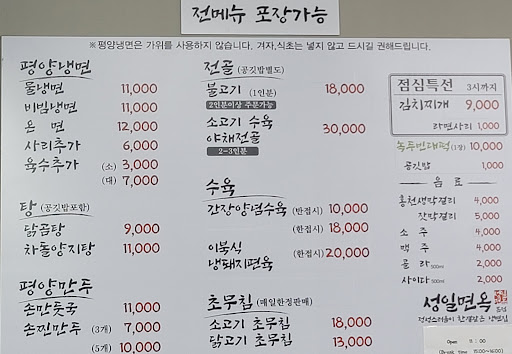 전메뉴 포장가능
※평양냉면은 가위를 사용하지 않습니다. 겨자,식초는 넣지 않고 드시길 권해드립니다.
평양냉면
물냉면 11,000
비빔냉면 11,000
온 면 12,000
사리추가 6,000
육수추가 (소) 3,000
(대) 7,000
탕 (공깃밥포함)
닭곰탕 9,000
차돌양지탕 11,000
평양만두
손만둣국 11,000
손찐만두 (3개) 7,000
(5개) 10,000
전골 (공깃밥별도)
불고기 (1인분) 18,000
2인분이상 주문가능
소고기 수육
야채전골 30,000
2-3인분
수육
간장양념수육 (반접시) 10,000
(한접시) 18,000
이북식
냉돼지편육 (한접시) 20,000
초무침 (매일한정판매)
소고기 초무침 18,000
닭고기 초무침 13,000
점심특선 3시까지
김치찌개 9,000
라면사리 1,000
녹두빈대떡 (1장) 10,000
공깃밥 1,000
음 료
홍천생막걸리 4,000
잣막걸리 5,000
소 주 4,000
맥 주 4,000
콜 라 500ml 2,000
사이다 500ml 2,000
성일면옥
Open 11:00